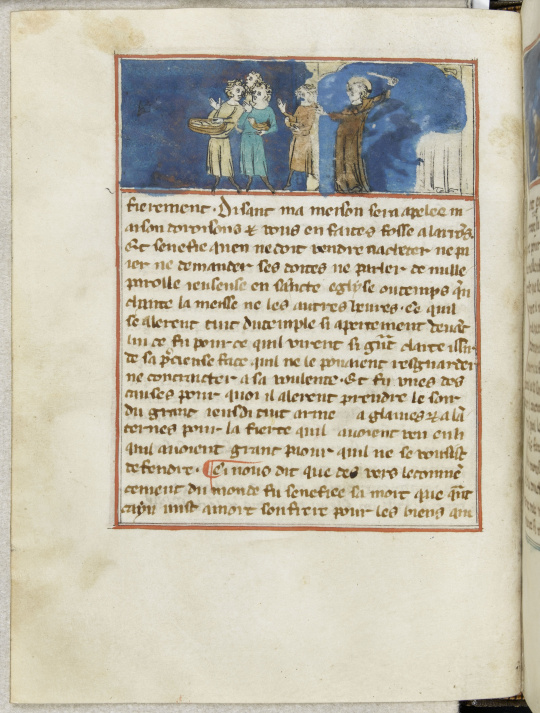 fierement. Disant ma meison sera apelee m
aison doroisons & vous en faites fosse a larrons
Et senefie quen ne doit vendre nacheter ne p
ier ne demander ses dettes ne parler de nulle
parolle ieusense en saincte eglyse ou temps qn
chante la messe ne les autres heures. ce quil
se alerent tuit du temple si apertement devāt
lui ce fu pour ce quil virent si gūt clarte issir
de sa pciense face quil ne le pouoient resgnarder
ne contraicter a sa voulente. Et fu unes des
causes pour quoi il alerent prendre le soir
du grant ieusdi tuit arme a glaives & a lā
ternes pour la fierte quil avoient veu en li
quil avoient grant paour quil ne se vousist
defendre. Ci nous dit que des vers le commē
cement du monde fu senefiee sa mort que qūt
cayn mist a mort son frere pour les biens qui